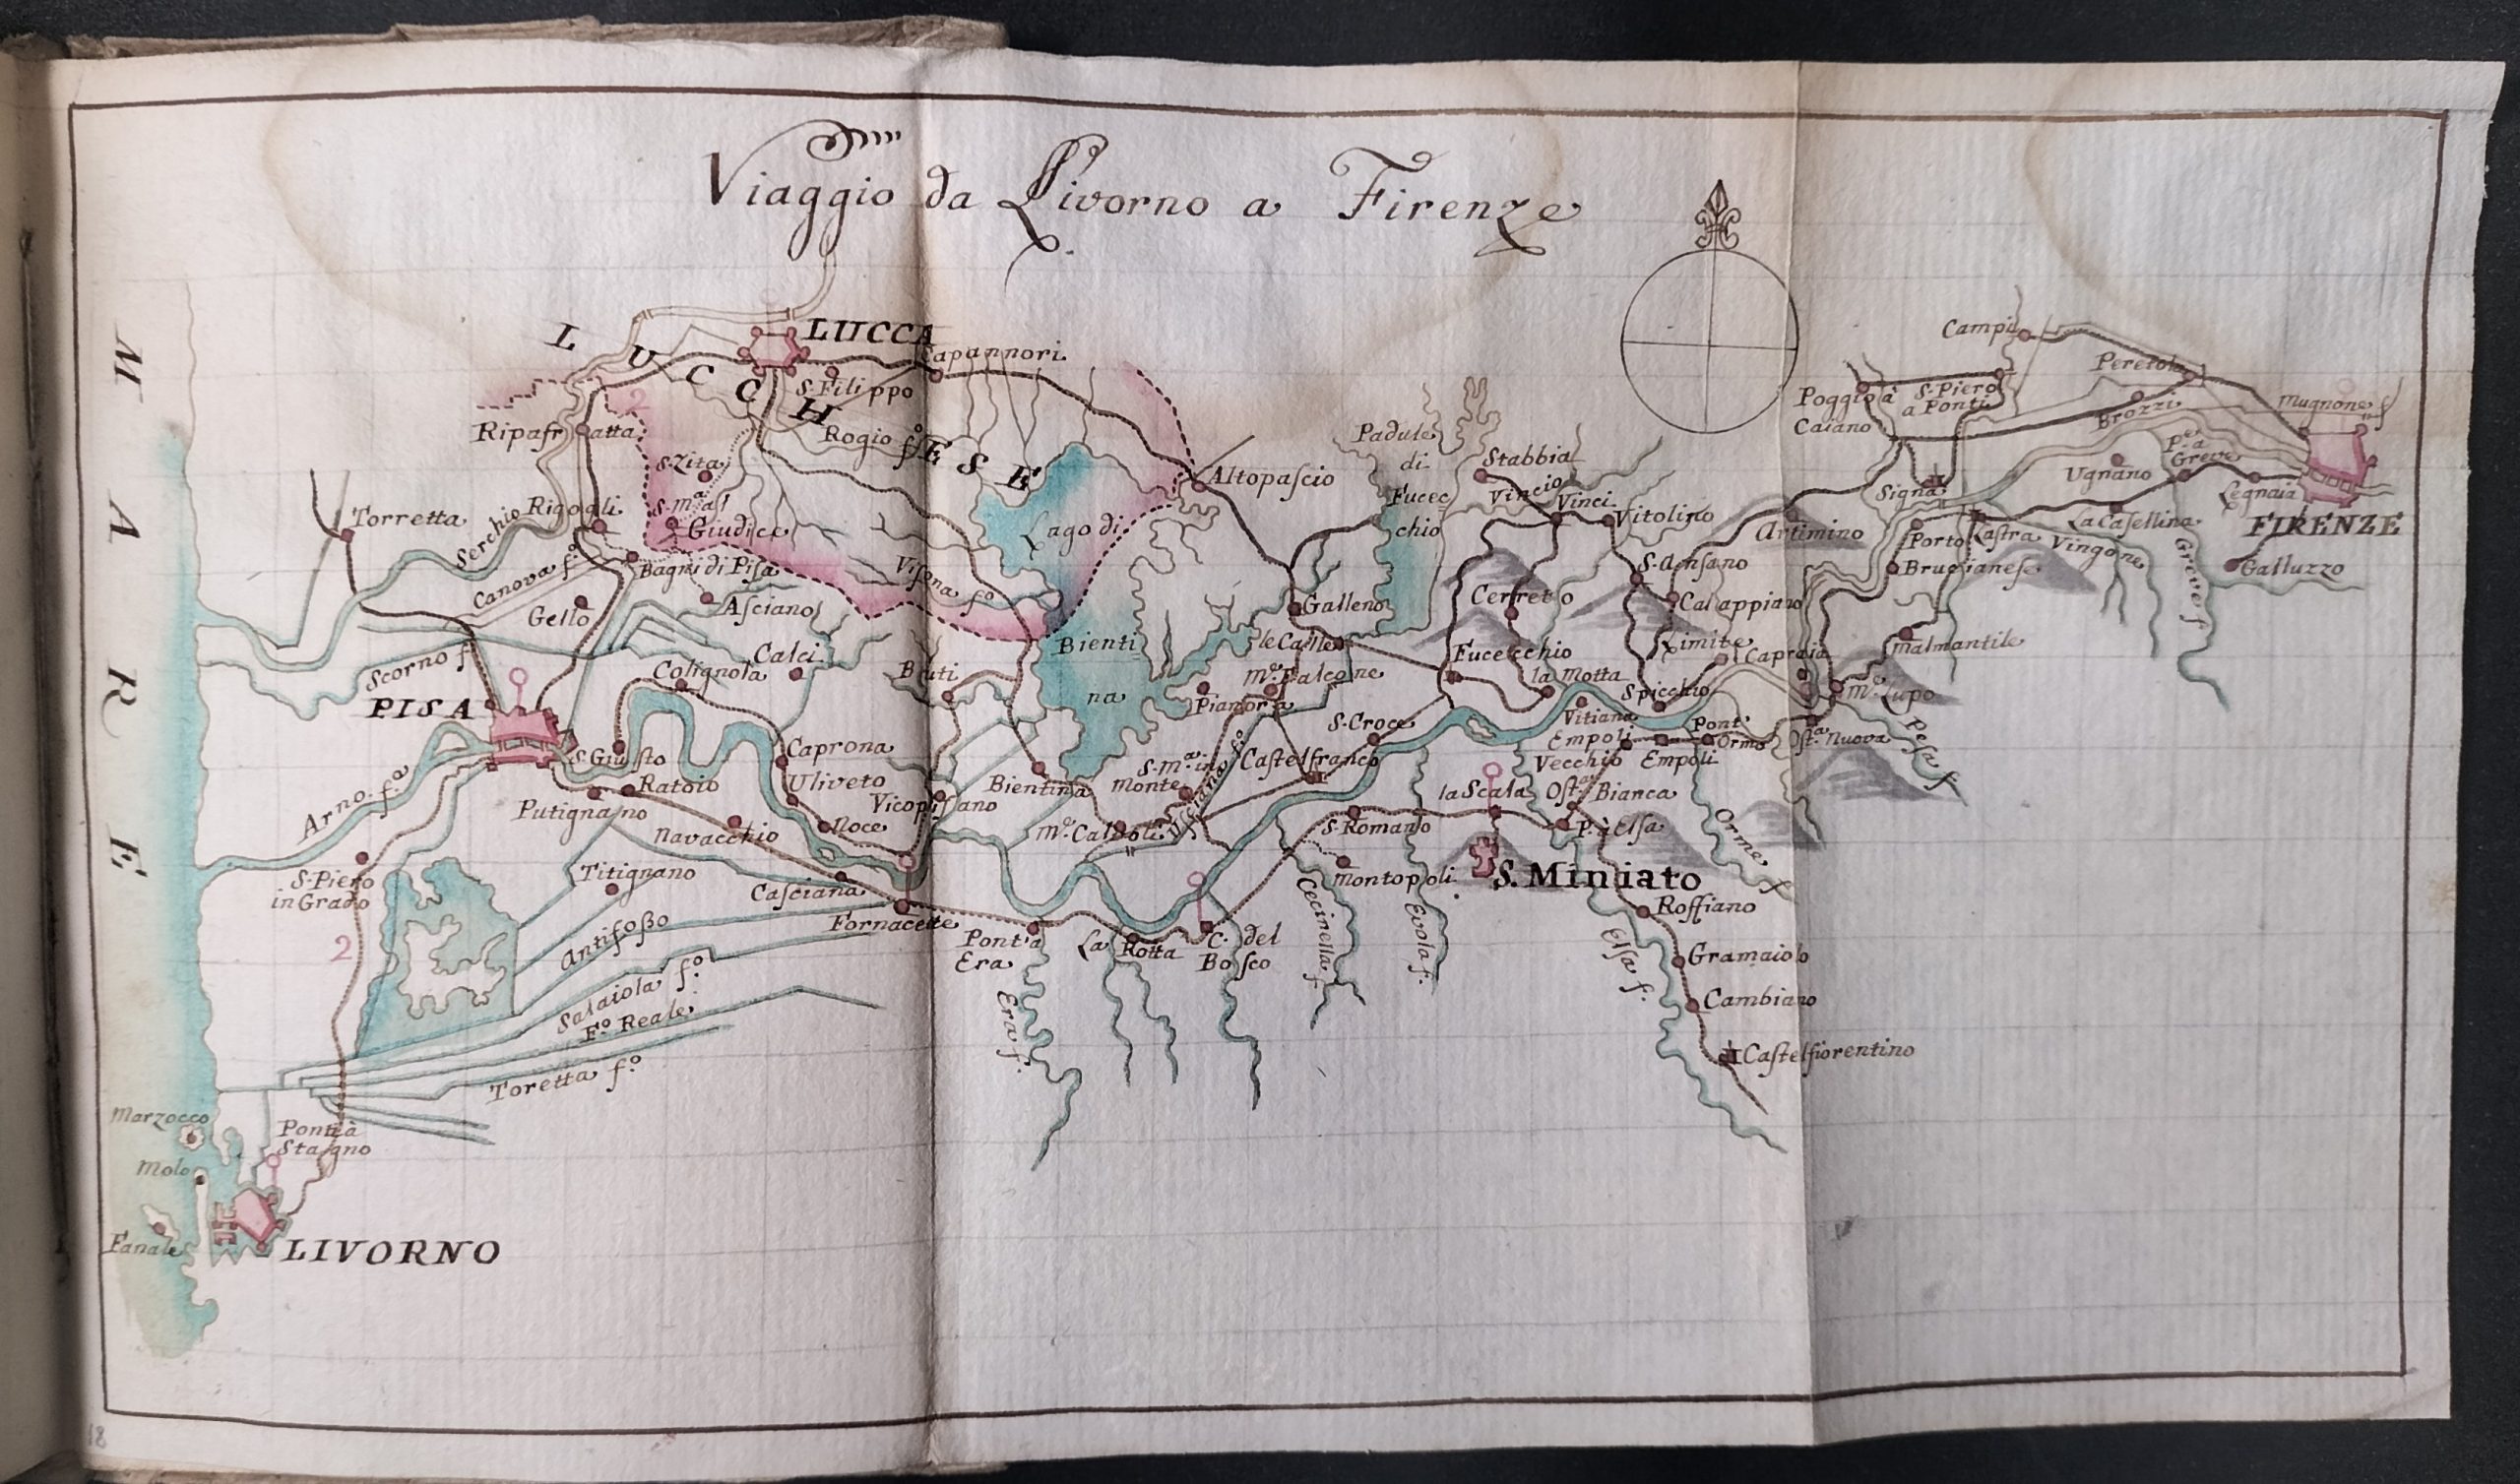 Viaggio da Livorno a Firenze
MARE
LUCCHESE
LUCCA
Capannori
S. Filippo
2
Ripafratta
Rogio f.º
S. Zita
S. M.ª al
Giudice
Torretta
Serchio
Rigoli
Canova f.º
Bagni di Pisa
Visona f.º
Lago di
Bientina
Altopascio
Gello
Asciano
Scorno f.
Calci
Colignola
Buti
PISA
S. Giusto
Caprona
Ratoio
Uliveto
Putignano
Vicopisano
Bientina
Navacchio
Noce
Arno. f.ª
S. Piero
in Grado
Titignano
Casciana
Fornacette
Antifoßo
2
Salaiola f.º
F.º Reale
Toretta f.º
Marzocco
Ponte à
Stagno
Molo
Fanale
LIVORNO
Padule
di
Fucec
chio
Stabbia
Vincio
Vinci
Vitolino
Galleno
le Calle
Cerreto
S. Ansano
Calappiano
Artimino
Limite
Capraia
Fucecchio
la Motta
Spicchio
M.e Falcone
Pianora
S. Croce
Vitiana
Empoli
Vecchio
Empoli
Pont'
Ormo
Ost.ª Nuova
M.e Lupo
Malmantile
Pesa f.
S. M.ª in
Monte
Castelfranco
Usciana f.º
M.e Calvoli
la Scala
Ost.ª Bianca
S. Romano
P. à Elsa
Orme f.
Montopoli
S. Miniato
Pont'a
Era
La Rotta
C. del
Bosco
Cecinella f.
Evola f.
Era f.
Elsa f.
Roffiano
Gramaiolo
Cambiano
Castelfiorentino
Campi
Peretola
Poggio à
Caiano
S. Piero
a Ponti
Brozzi
Mugnone f.
Ugnano
P.te a
Greve
Legnaia
Signa
La Casellina
FIRENZE
Porto
Lastra
Vingone
Bruccianese
Greve f.
Galluzzo
18